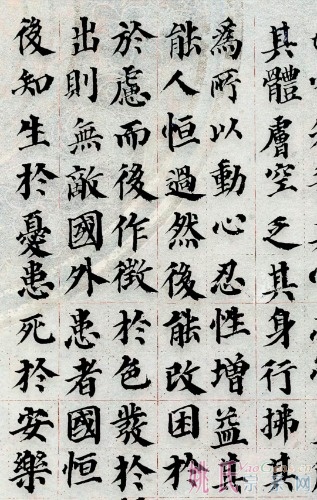 其體膚空乏其身行拂其
爲所以動心忍性增益其
能人恒過然後能改困於
於慮而後作徵於色發於
出則無敵國外患者國恒
後知生於憂患死於安樂